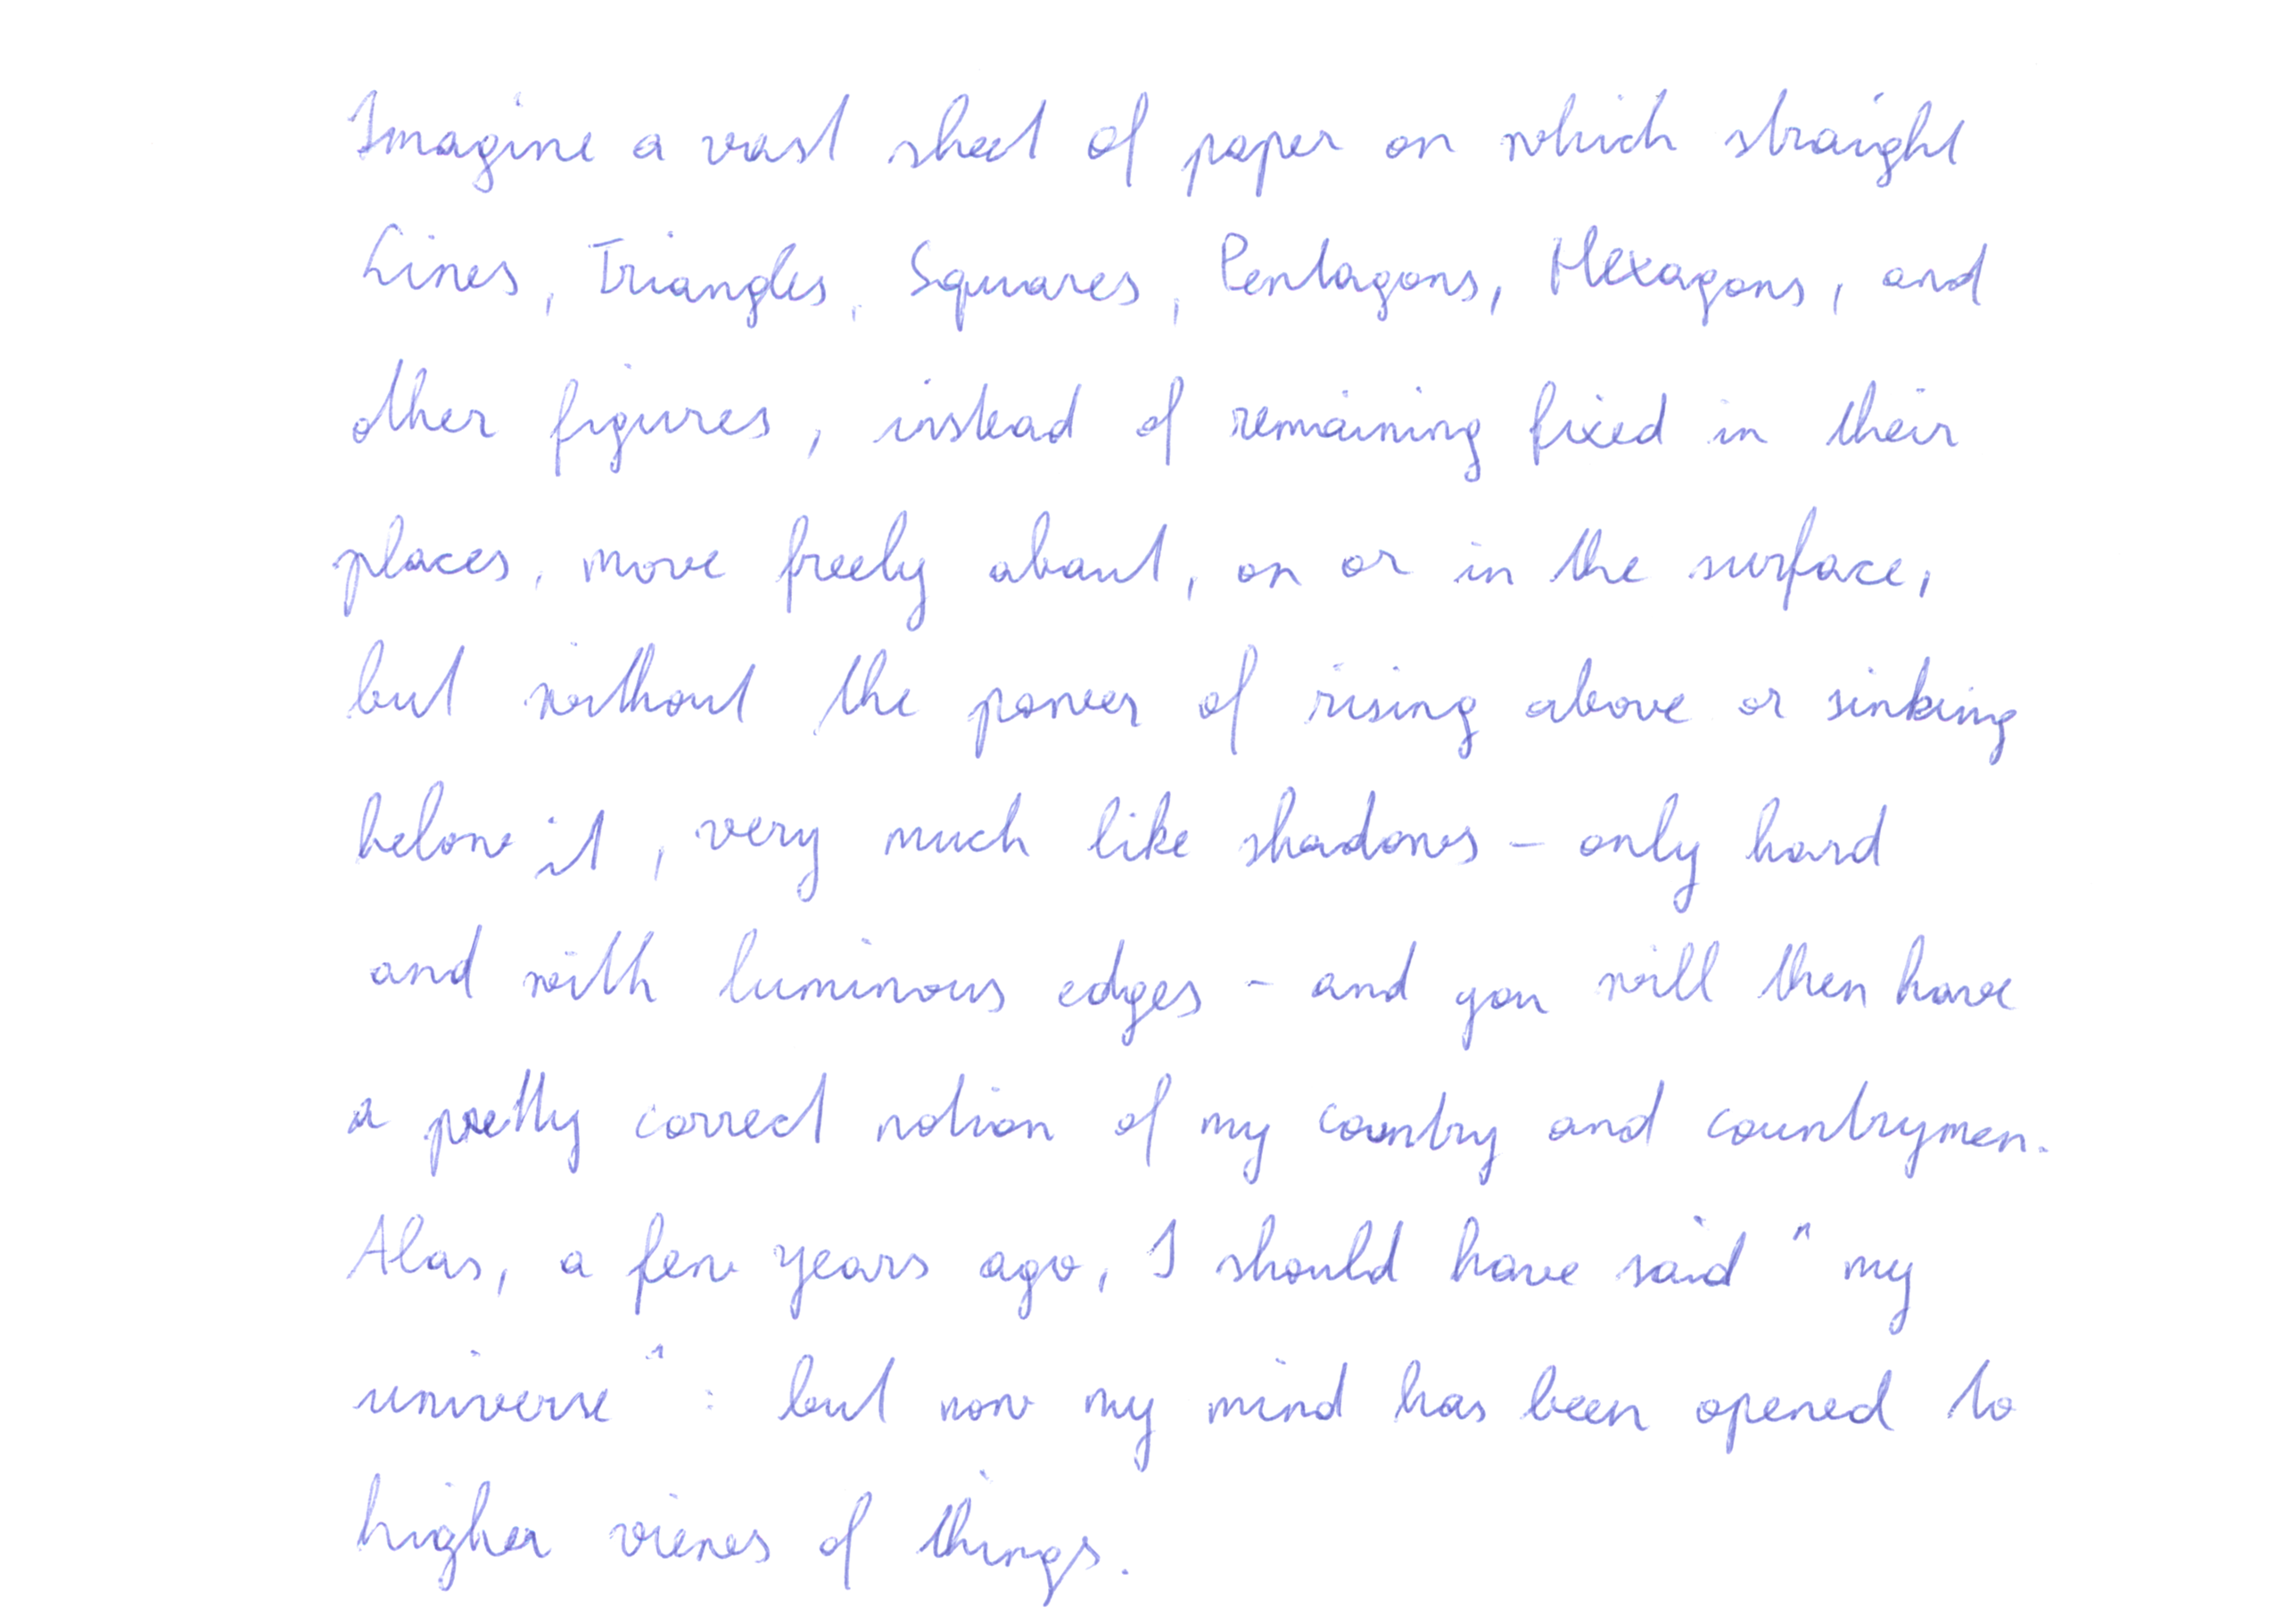 Imagine a vast sheet of paper on which straight
Lines, Triangles, Squares, Pentagons, Hexagons, and
other figures, instead of remaining fixed in their
places, move freely about, on or in the surface,
but without the power of rising above or sinking
below it, very much like shadows - only hard
and with luminous edges - and you will then have
a pretty correct notion of my country and countrymen.
Alas, a few years ago, I should have said "my
universe": but now my mind has been opened to
higher views of things.